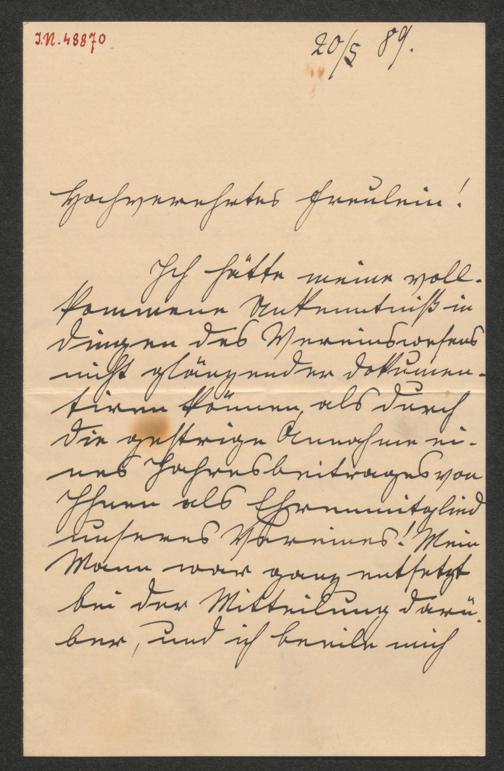 J.N. 48870
20/5 89.
Hochverehrtes Fräulein!
Ich hätte meine voll-
kommene Unkenntniß in
Dingen des Vereinswesens
nicht glänzender dokumen-
tiren können, als durch
die gestrige Annahme ei-
nes Jahresbeitrages von
Ihnen als Ehrenmitglied
unseres Vereines! Mein
Mann war ganz entsetzt
bei der Mitteilung darü-
ber, und ich beeile mich